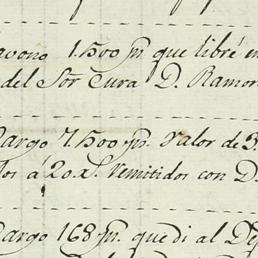 avono 1.500 ps. que libré
del Sor Cura D. Ramon
Cargo 7.500 ps. valor de 3.
los á 20 rs. remitidos con D.
Cargo 168 ps. que di al De